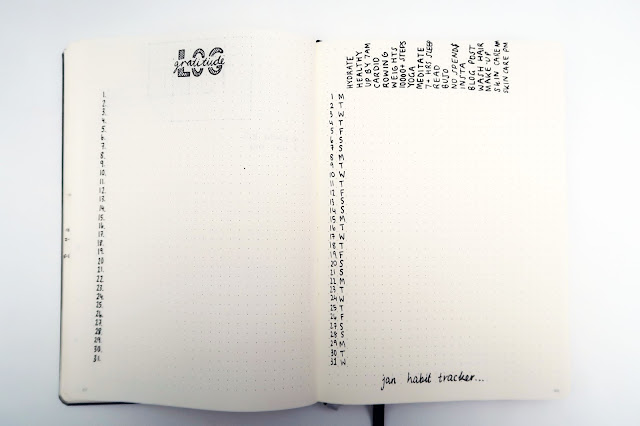 gratitude
LOG
1.
2.
3.
4.
5.
6.
7.
8.
9.
10.
11.
12.
13.
14.
15.
16.
17.
18.
19.
20.
21.
22.
23.
24.
25.
26.
27.
28.
29.
30.
31.
HYDRATE
HEALTHY
UP BY 7AM
CARDIO
ROWING
WEIGHTS
10000+ STEPS
YOGA
MEDITATE
7+ HRS SLEEP
READ
BUJO
NO SPEND$
INSTA
BLOG POST
WASH HAIR
MAKE UP
SKIN CARE AM
SKIN CARE PM
1 M
2 T
3 W
4 T
5 F
6 S
7 S
8 M
9 T
10 W
11 T
12 F
13 S
14 S
15 M
16 T
17 W
18 T
19 F
20 S
21 S
22 M
23 T
24 W
25 T
26 F
27 S
28 S
29 M
30 T
31 W
jan habit tracker...